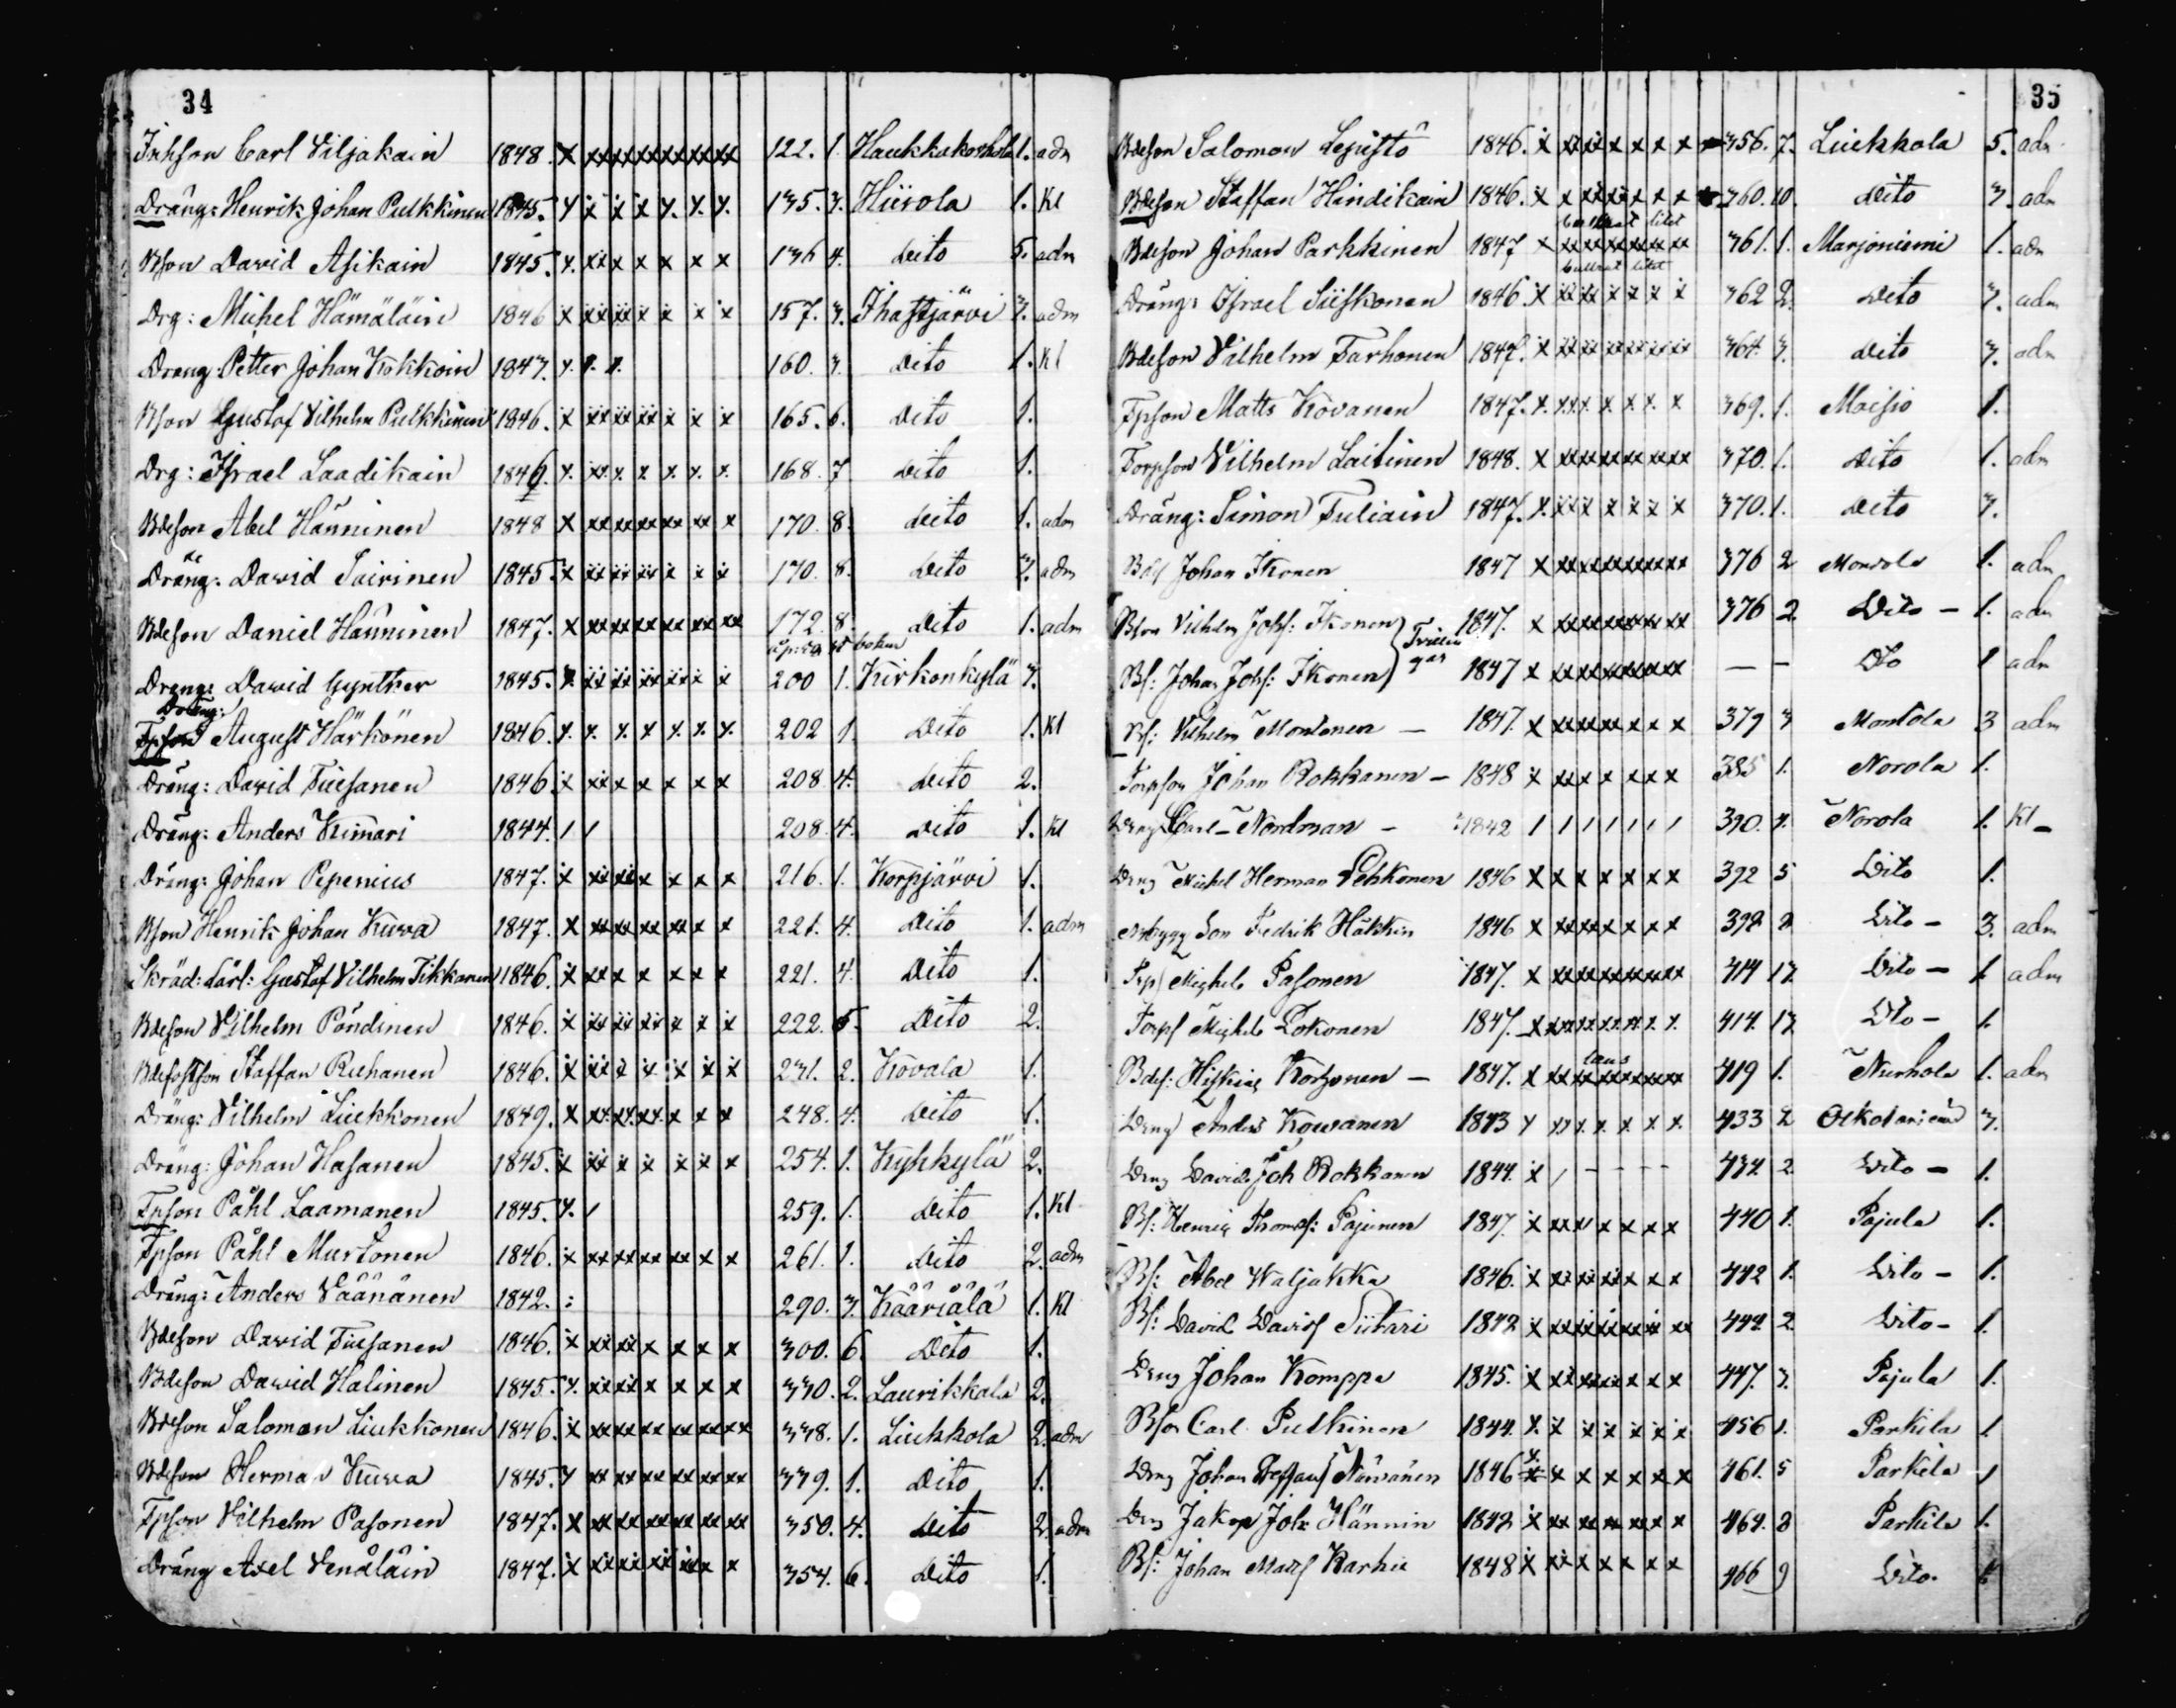 34
Inhson Carl Viljakain 1848. x xx xx xx xx xx xx 122. 1 Haukkakorhola 1. adm
Dräng: Henrik Johan Pulkkinen 1845. y x x x y. y. y. 135. 3. Hiirola 1. Kl
Bson David Asikain 1845. y. xx x x x x x 136 4. dito 5. adm
Drg: Michel Hämäläin 1846 x xx xx x x x x 157. 3. Ihastjärvi 3. adm
Dräng Petter Johan Kokkoin 1847. y. 160. 3. dito 1. Kl
Bson Gustaf Vilhelm Pulkkinen 1846. x xx xx xx x x x 165. 6. dito 1.
Drg: Israel Laadikain 1846. y. xx. x. x x. x. x. 168. 7 dito 1.
Bdeson Abel Hänninen 1848 x xx xx xx xx xx x 170. 8. dito 1. adm
Dräng: David Sairinen 1845. x xx xx xx x x x 170. 8. dito 3. adm
Bdeson Daniel Hänninen 1847. x xx xx xx xx xx xx 172. 8. dito 1. adm
Dräng: David Gynther 1845. x xx xx xx xx x x 200 1. Kirkonkylä 3.
Dräng:
Tpson August Härkönen 1846. y. y. y. y. y. y. y. 202 1 dito 1. Kl
Dräng: David Tuesanen 1846. x xx x x x x x 208 4. dito 2.
Dräng: Anders Kinnari 1844. / / 208. 4. dito 1. Kl
Dräng: Johan Pepenius 1847. x xx xx x x x x 216. 1. Korpjärvi 1.
Bson Henrik Johan Kuva 1847. x xx xx xx xx x x 221. 4. dito 1. adm
Skräd: Lärl: Gustaf Vilhelm Tikkanen 1846. x xx x x x x x 221. 4. dito 1.
Bdeson Vilhelm Pöndinen 1846. x xx xx xx x x x 222. 5. dito 2.
Staffan Ruhanen 1846. x xx x x x x x 231. 2. Kovala 1.
Dräng: Vilhelm Liukkonen 1849. x xx. xx. xx. x x x 248. 4. dito 1.
Dräng: Johan Hasanen 1845. x xx x x x x x 254. 1. Kyhkylä 2.
Tpson Påhl Laamanen 1845. y. / 259. 1. dito 1. Kl
Tpson Påhl Murtonen 1846. x xx xx xx xx x x 261. 1. dito 2. adm
Dräng: Anders Väänänen 1842. : 290. 3. Kääriälä 1. Kl
Bdeson David Tuesanen 1846. x xx xx x x x x 300. 6. Dito 1.
Bdeson David Halinen 1845. y. xx xx x x x x 330. 2. Laurikkala 2.
Bdeson Saloman Liukkonen 1846. x xx xx xx xx xx xx 338. 1. Liukkola 2. adm
Bdeson Herman Kuva 1845. y xx xx xx xx xx xx 339. 1. dito 1.
Tpson Vilhelm Pasonen 1847. x xx xx xx xx xx xx 350. 4. dito 2. adm
Dräng Axel Venäläin 1847. x xx xx xx xx x x 354. 6. dito 1.
35
Bdeson Salomon 1846. x xx xx x x x x 356. 7. Liukkola 5. adm
Bdeson Staffan Hindikain 1846. x x xx xx x x x 360. 10. dito 3. adm
Bdeson Johan Parkkinen 1847 x xx xx xx xx xx xx 361. 1. Marjoniemi 1. adm
Dräng: Israel Siiskonen 1846. x xx xx x x x x 362 2. dito 3. adm
Bdeson Vilhelm Tarhonen 1847. x xx xx xx xx xx xx 364. 3. dito 3. adm
Tpson Matts Kovanen 1847. x. xx x. x x x. x 369. 1. Moisio 1.
Torpson Vilhelm Laitinen 1848. x xx xx xx xx xx xx 370. 1. dito 1. adm
Dräng: Simon Tuliain 1847. x. xx x x x x x 370. 1. dito 3.
Johan Ikonen 1847 x xx xx xx xx xx xx 376 2 1. adm
Bson Vilhelm Johs: Ikonen } Tvillin 1847. x xx xx xx xx xx xx 376 2 Dito - 1. adm
Bs: Johan Johs: Ikonen gar 1847 x xx xx xx xx xx xx — — Dito 1 adm
Bs: Vilhelm Montonen — 1847. x xx xx xx x x x 379 3 Montola 3 adm
Torpson Johan Rokkanen — 1848 x xx x x x x x 385 1. Norola 1.
Dreng Carl Nordman - 1842 / / / / / / / 390. 4. Norola 1. Kl
Dreng Michel Herman Pehkonen 1846 x x x x x x x 392 5 Dito 1.
Son Fredrik Häkkin 1846 x xx xx x x x x 392 Dito - 3. adm
Michel Pasonen 1847. x xx xx xx xx xx xx 414 13 Dito - 1 adm
Torps Michel Tokonen 1847. x xx xx xx xx x x 414. 13 Dito - 1.
Bdes: Hiskias Korhonen — 1847. x xx xx xx xx xx xx 419 1. Nurhola 1. adm
Dreng Anders Kowanen 1843 y xx x. x. x. x. x. 433 2 3.
Dreng David Joh Rokkanen 1844. x / - - - - 434 2 Dito - 1.
Bs: Henric Thoms: Pajunen 1847. x xx x x x x x 440 1. Pajula 1.
Bs: Abel Waljakka 1846. x xx xx xx x x x 442 1. Dito - 1.
Bs: David Davids Siitari 1842 x xx xx xx xx xx xx 444 2 Dito - 1.
Dreng Johan Komppa 1845. x xx xx xx x x x 447. 3. Pajula 1.
Bson Carl Pulkinen 1844. x. x x x x x x 456 1. Parkila 1
Dreng Johan Staffans Növänen 1846 x x x x x x x 461. 5 Parkila 1
Dreng Jakop Johs Hännin 1842 x xx xx xx x x x 464. 8 Parkila 1.
Bs: Johan Mats Karhu 1848 x xx x x x x x 466 9 Dito.